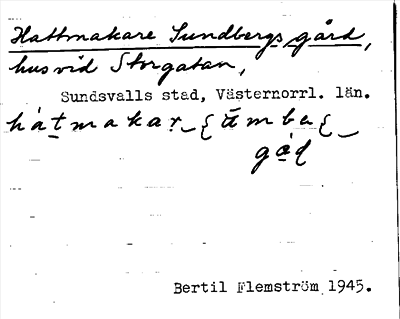 Hattmakare Sundbergs gård,
hus vid Storgatan,
Sundsvalls stad, Västernorrl. län.
Bertil Flemström 1945.